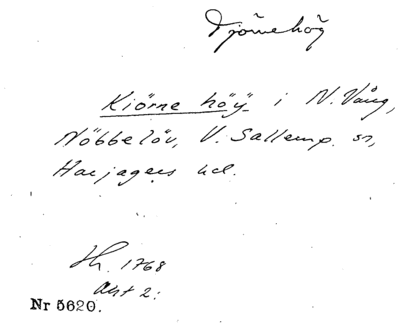 Djörnehög
Kiörne höÿ i N. Vång,
Nöbbelöv, V. Sallerup sn,
Harjagers hd.
Lh. 1768
Akt 2:
Nr 5620.